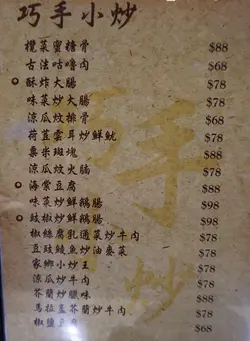 巧手小炒
欖菜蜜糖骨 $88
古法咕嚕肉 $68
酥炸大腸 $78
味菜炒大腸 $78
涼瓜炆排骨 $68
荷荳雲耳炒鮮魷 $78
粟米斑塊 $88
涼瓜炆火腩 $78
海棠豆腐 $88
味菜炒鮮鵝腸 $98
豉椒炒鮮鵝腸 $98
椒絲腐乳通菜炒牛肉 $78
豆豉鯪魚炒油麥菜 $78
家鄉小炒王 $78
涼瓜炒牛肉 $78
芥蘭炒臘味 $88
馬拉盞芥蘭炒牛肉 $78
椒鹽豆腐 $68
巧手
炒